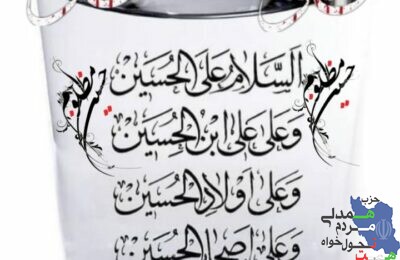 السَّلامُ عَلَى الحُسَيْن
وَعَلى عَلِى ابْنِ الحُسَيْن
وَعَلى أَوْلادِ الحُسَيْن
وَعَلى أَصْحابِ الحُسَيْن
حسین مظلوم
حسین مظلوم
حزب
همدلی
مردم
تحول خواه